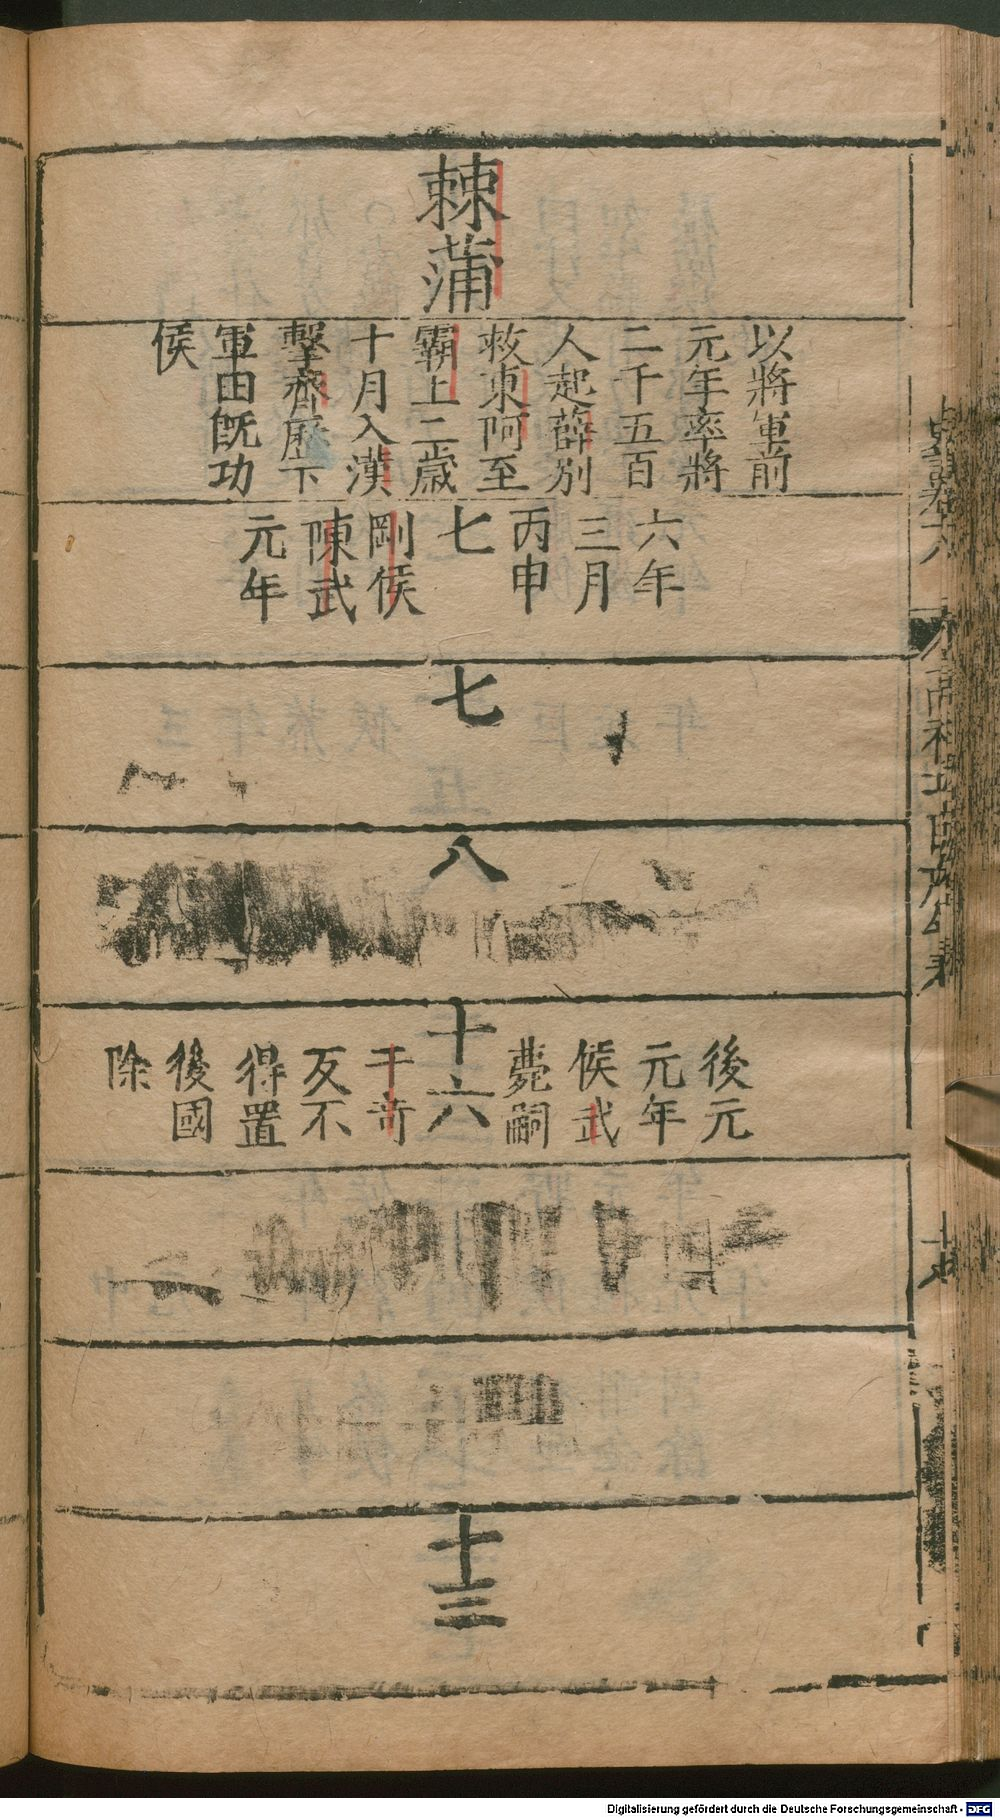 棘蒲
以將軍前
元年率將
二千五百
人起薛別
救東阿至
霸上二歲
十月入漢
擊齊歷下
軍田旣功
侯
六年
三月
丙申
七
剛侯
陳武
元年
七
八
後元
元年
侯武
薨嗣
十六
子奇
反不
得置
後國
除
十三
Digitalisierung gefördert durch die Deutsche Forschungsgemeinschaft - DFG